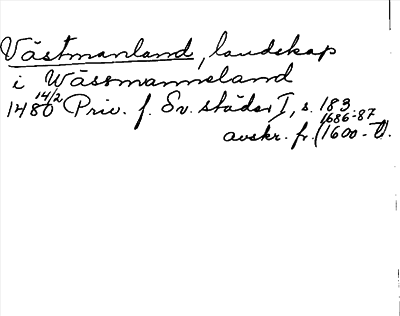 Västmanland, landskap
i Wässmanneland
1480 14/2 Priv. f. Sv. städer I, s. 183
1686-87
avskr. fr. (1600-t).